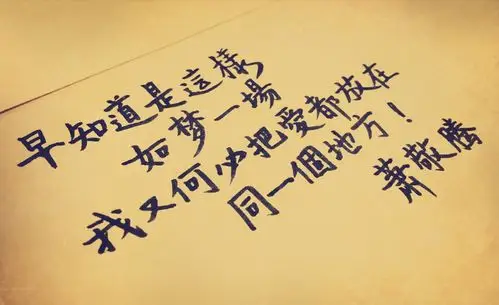 早知道是這樣
如梦一場
我又何必把愛都放在
同一個地方！
蕭敬腾